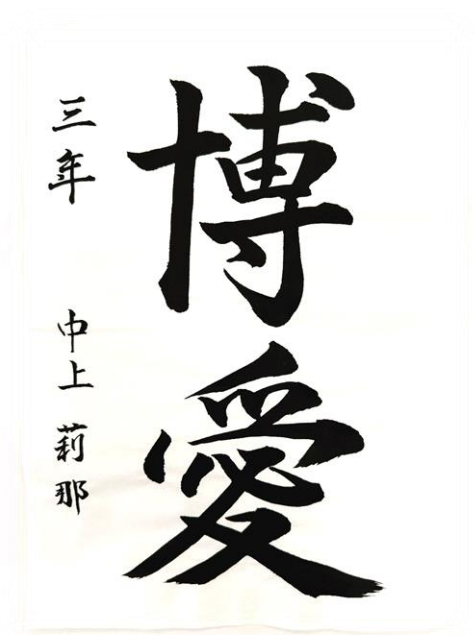 博愛
三年 中上 莉那